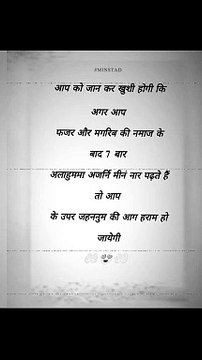 #MINSTAD
आप को जान कर खुशी होगी कि
अगर आप
फजर और मगरिब की नमाज के
बाद 7 बार
अलाहुममा अजर्नि मीनं नार पढ़ते हैं
तो आप
के उपर जहननुम की आग हराम हो
जायेगी